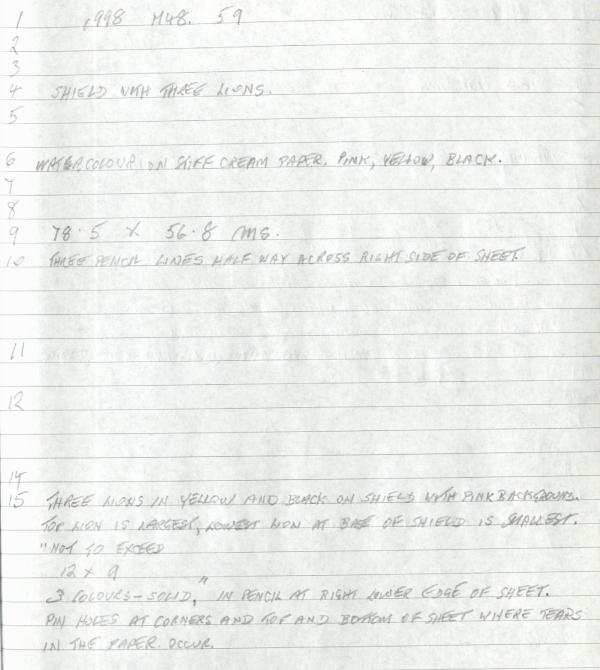 1 1998 M48. 59
2
3
4 SHIELD WITH THREE LIONS.
5
6 WATERCOLOUR ON STIFF CREAM PAPER. PINK, YELLOW, BLACK.
7
8
9 78.5 X 56.8 CMS.
10 THREE PENCIL LINES HALF WAY ACROSS RIGHT SIDE OF SHEET.
11
12
14
15 THREE LIONS IN YELLOW AND BLACK ON SHIELD WITH PINK BACKGROUND.
TOP LION IS LARGEST, LOWEST LION AT BASE OF SHIELD IS SMALLEST.
"NOT TO EXCEED
12 X 9
3 COLOURS - SOLID," IN PENCIL AT RIGHT LOWER EDGE OF SHEET.
PIN HOLES AT CORNERS AND TOP AND BOTTOM OF SHEET WHERE TEARS
IN THE PAPER OCCUR.